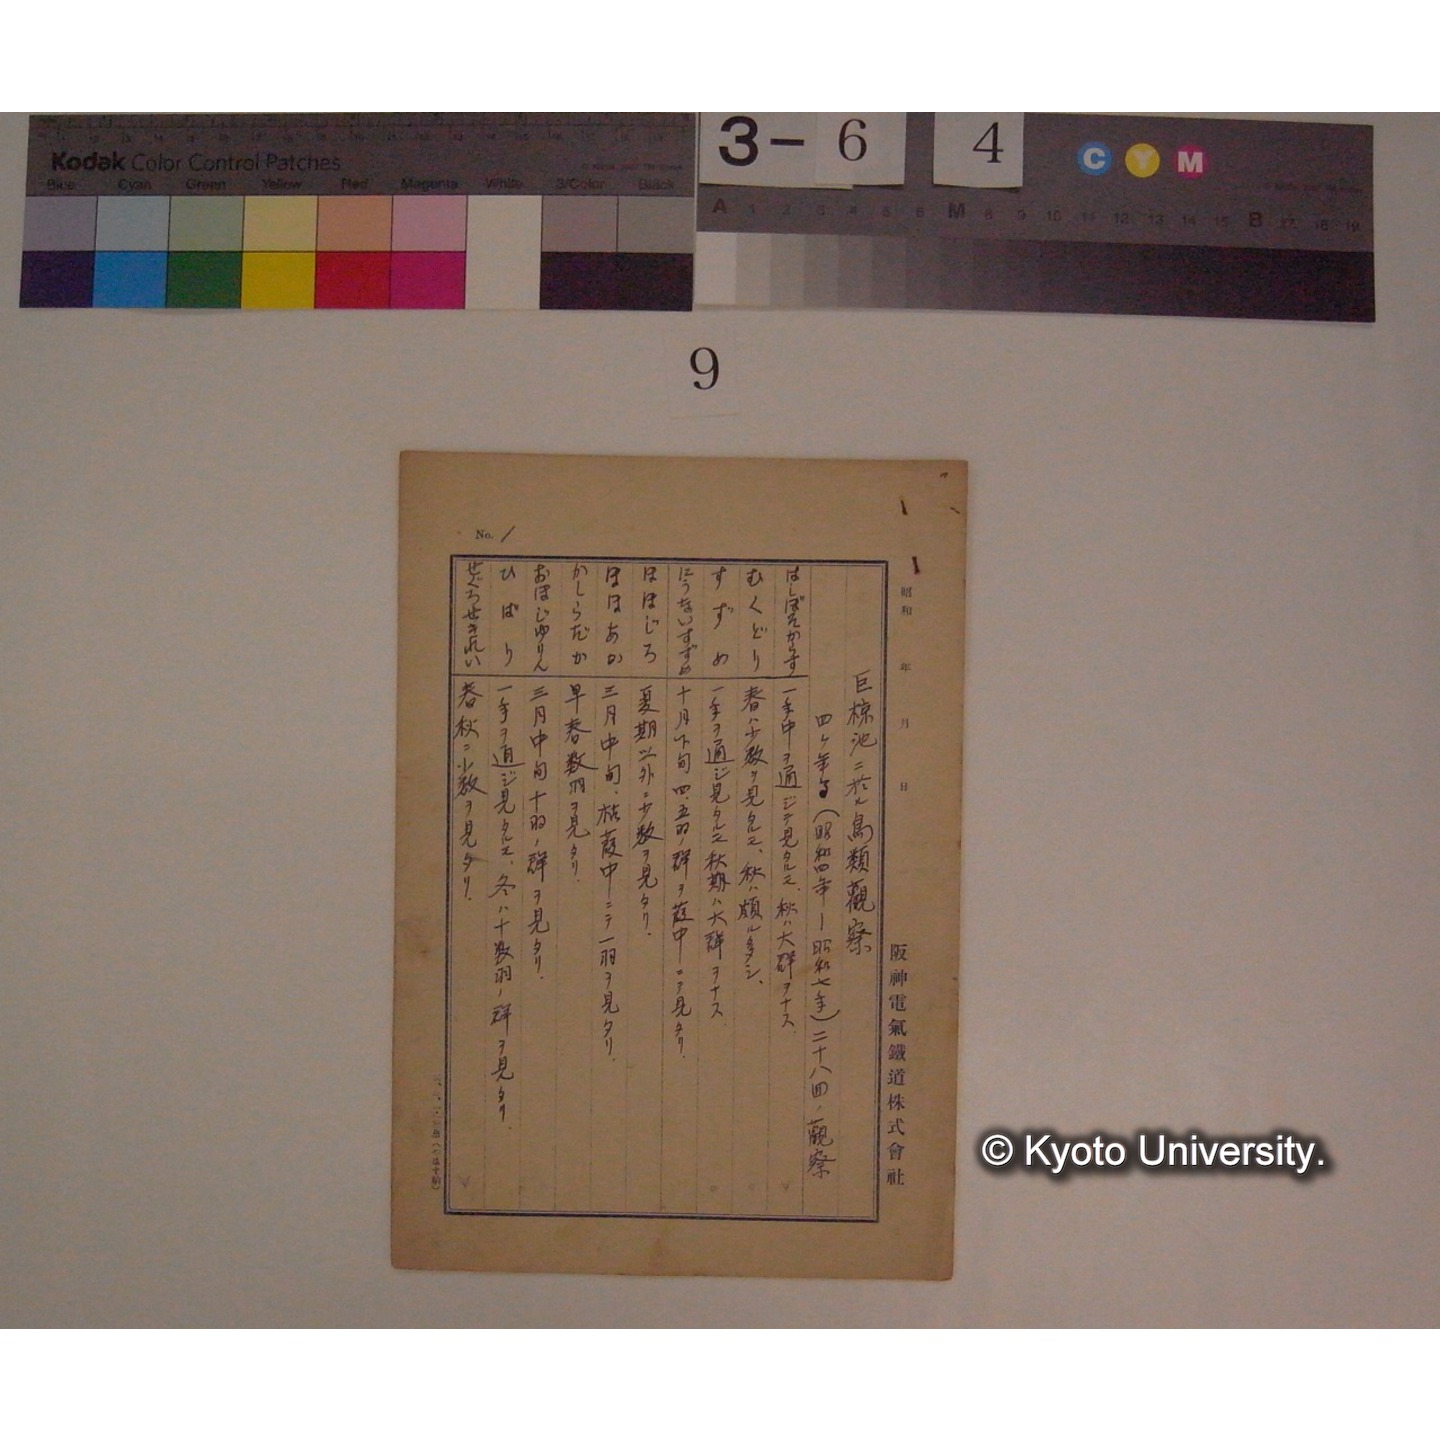 Kodak Color Control Patches
Blue Cyan Green Yellow Red Magenta White 3/Color Black
3-6 4
C Y M
A 1 2 3 4 5 6 M 8 9 10 11 12 13 14 15 B 17 18 19
9
No. 1
昭和 年 月 日
阪神電氣鐵道株式會社
巨椋池ニ於ル鳥類觀察
四ケ年間(昭和四年ー昭和七年)二十八回ノ觀察
はしぼそからす 一年中ヲ通ジテ見タルモ、秋ハ大群ヲナス.
むくどり 春ハ少数ヲ見タルモ、秋ハ頗ル多シ、
すずめ 一年ヲ通ジ見タルモ秋期ハ大群ヲナス
にうないすずめ 十月下旬四、五羽ノ群ヲ葭中ニテ見タリ.
ほほじろ 夏期以外ニ少数ヲ見タリ.
ほほあか 三月中旬、枯葭中ニテ一羽ヲ見タリ.
かしらだか 早春数羽ヲ見タリ.
おほじゆりん 三月中旬十羽ノ群ヲ見タリ.
ひばり 一年ヲ通ジ見タルモ、冬ハ十数羽ノ群ヲ見タリ.
せぐろせきれい 春秋ニ少数ヲ見タリ.
© Kyoto University.